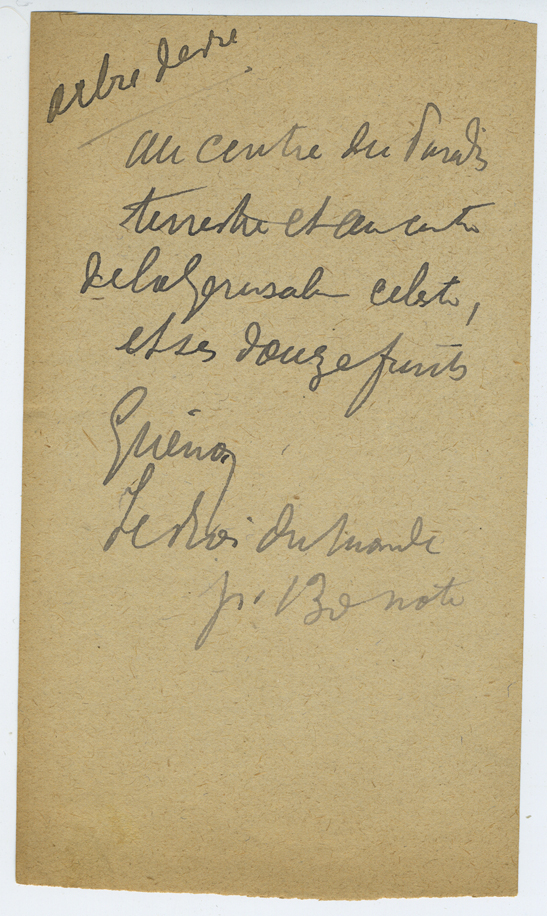 arbre de vie
au centre du Paradis
terrestre et au centre
de la Jerusalem celeste,
et ses douze fruits
Guénon
Le Roi du Monde
p. 130 note